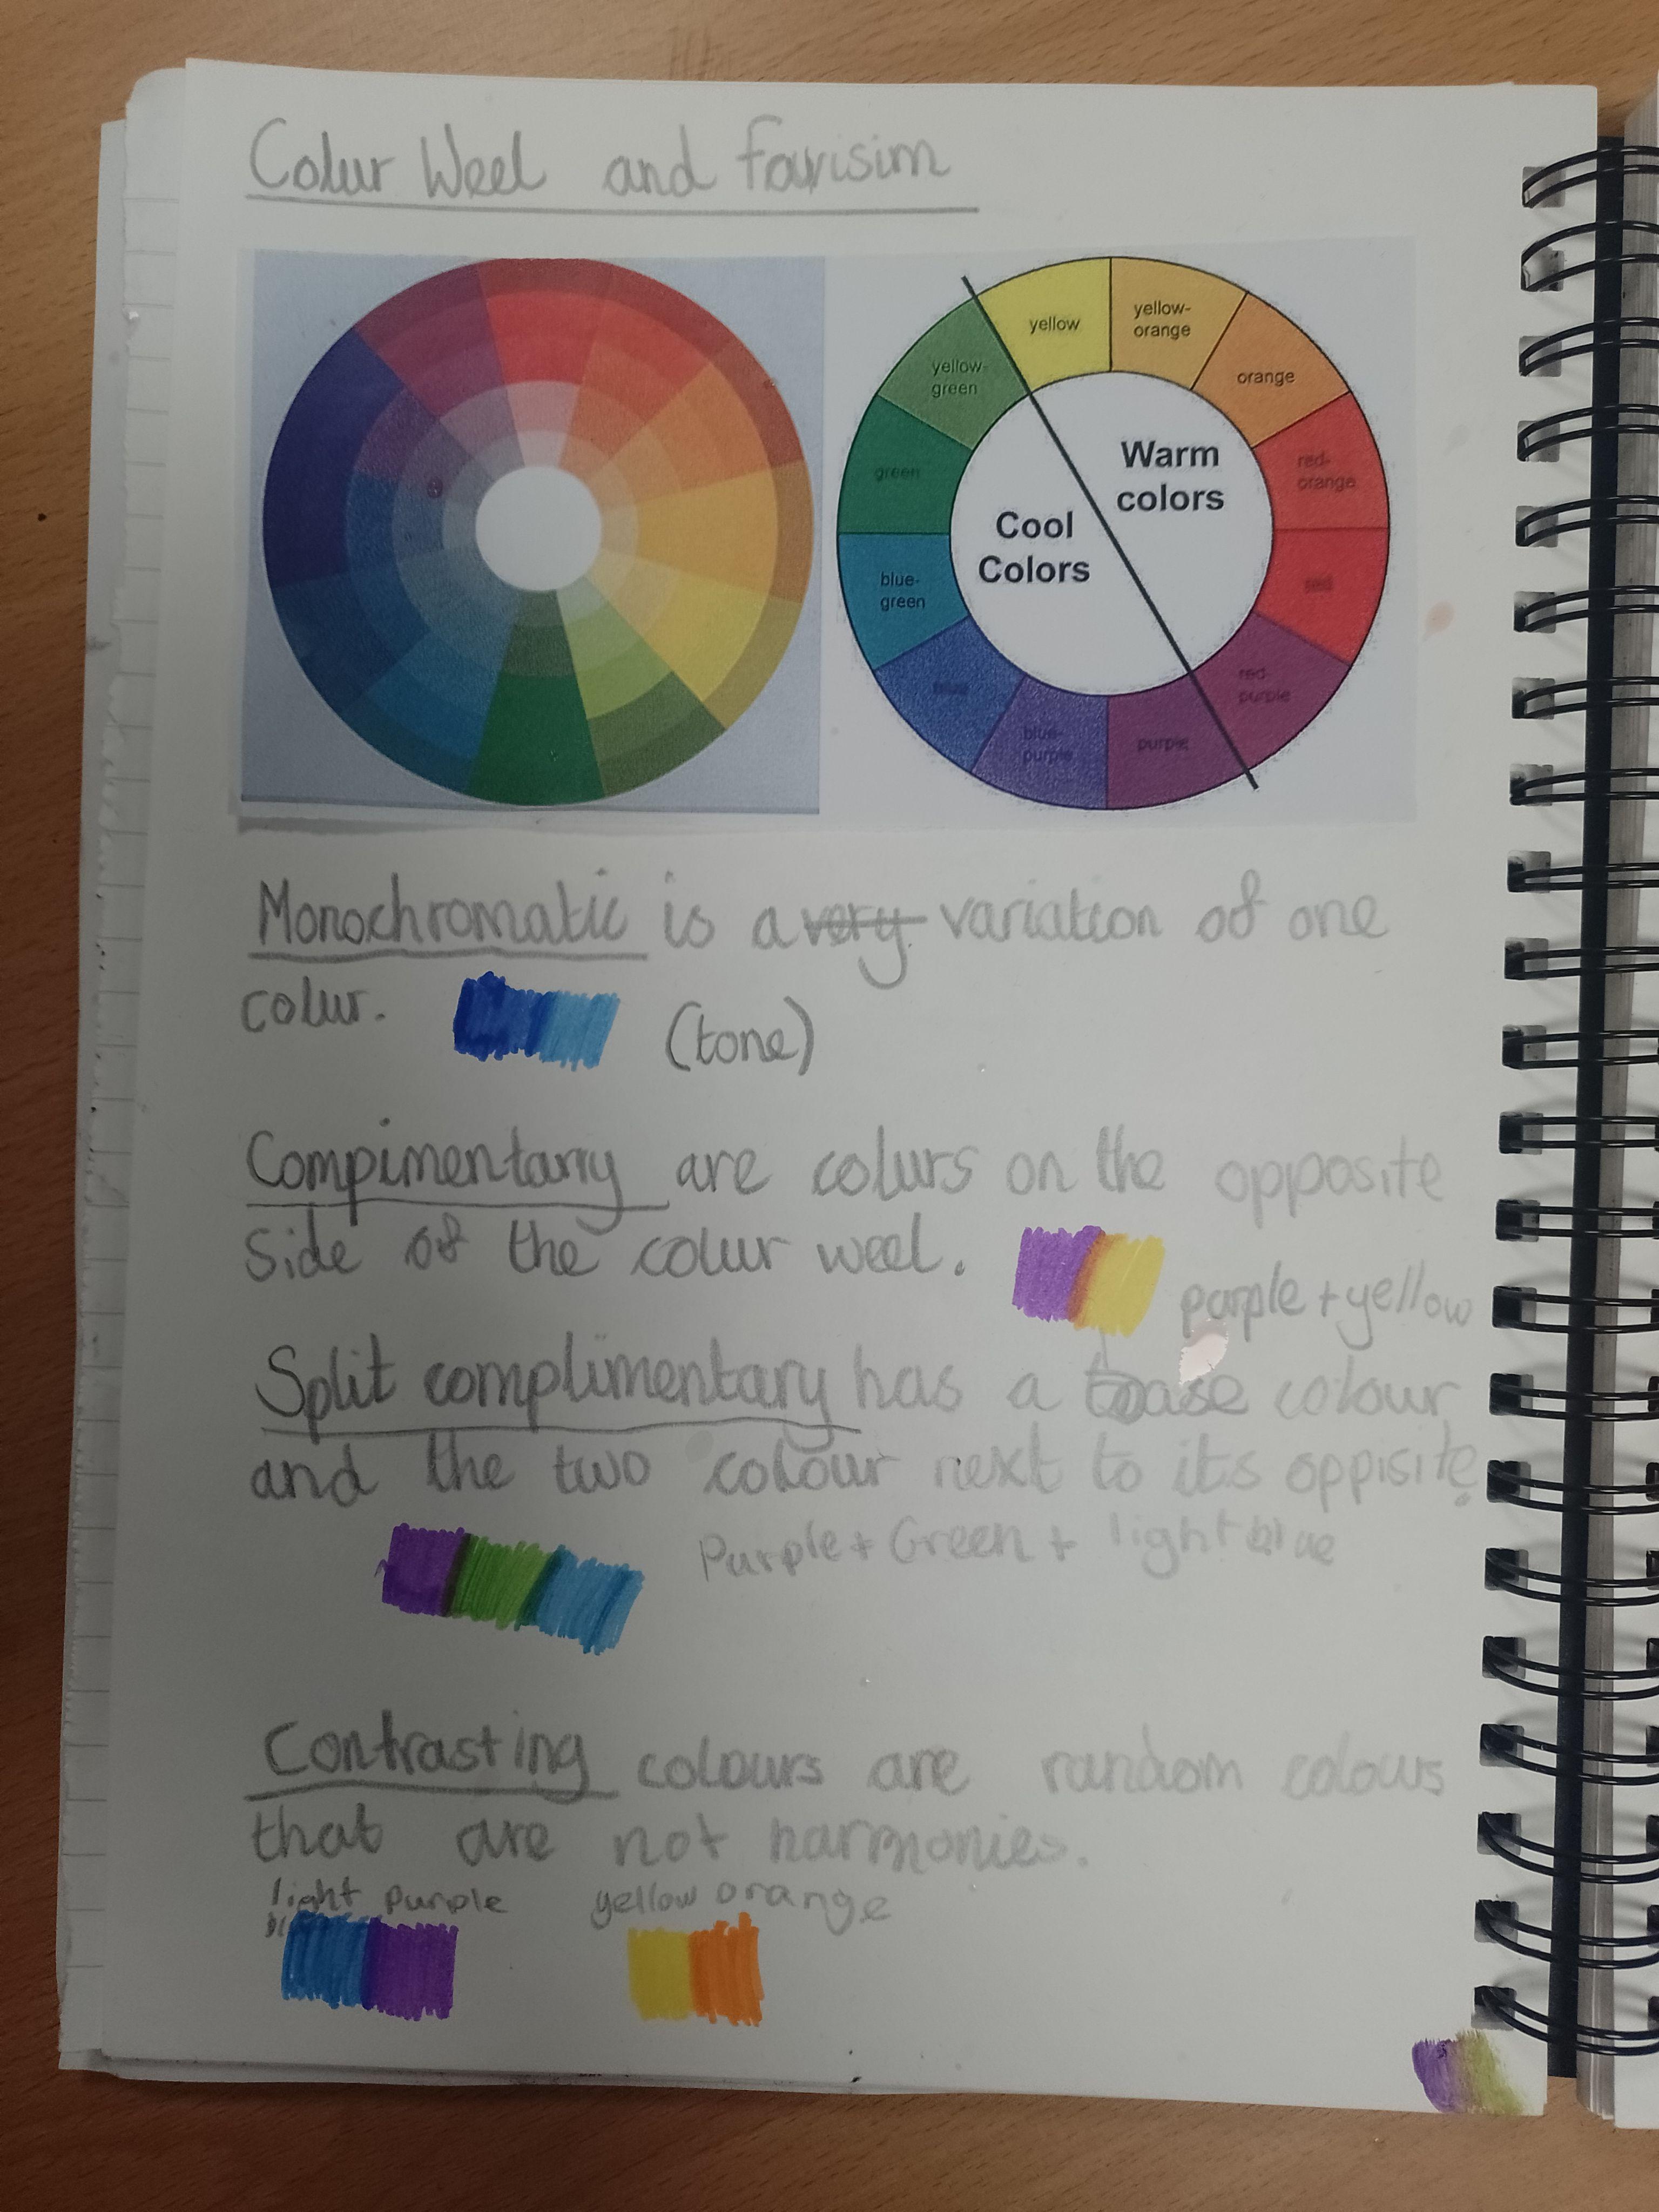 Colur Weel and favrisim
yellow
yellow-
orange
orange
red-
orange
red
red-
purple
purple
blue-
purple
blue
blue-
green
green
yellow-
green
Warm
colors
Cool
Colors
Monochromatic is a very variation of one
colur. (tone)
Compimentarry are colurs on the opposite
side of the colur weel.
purple + yellow
Split complimentary has a base colour
and the two colour next to its oppisite.
Purple + Green + light blue
Contrasting colours are random colous
that are not harmonies.
light purple yellow orange